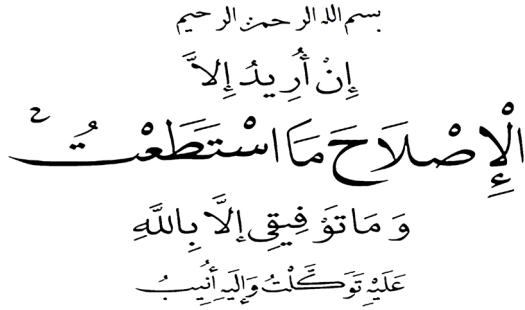 بسم الله الرحمن الرحيم
إِنْ أُرِيدُ إِلاَّ
الْإِصْلَاحَ مَا اسْتَطَعْتُ
وَمَا تَوْفِيقِي إِلَّا بِاللَّهِ
عَلَيْهِ تَوَكَّلْتُ وَإِلَيْهِ أُنِيبُ